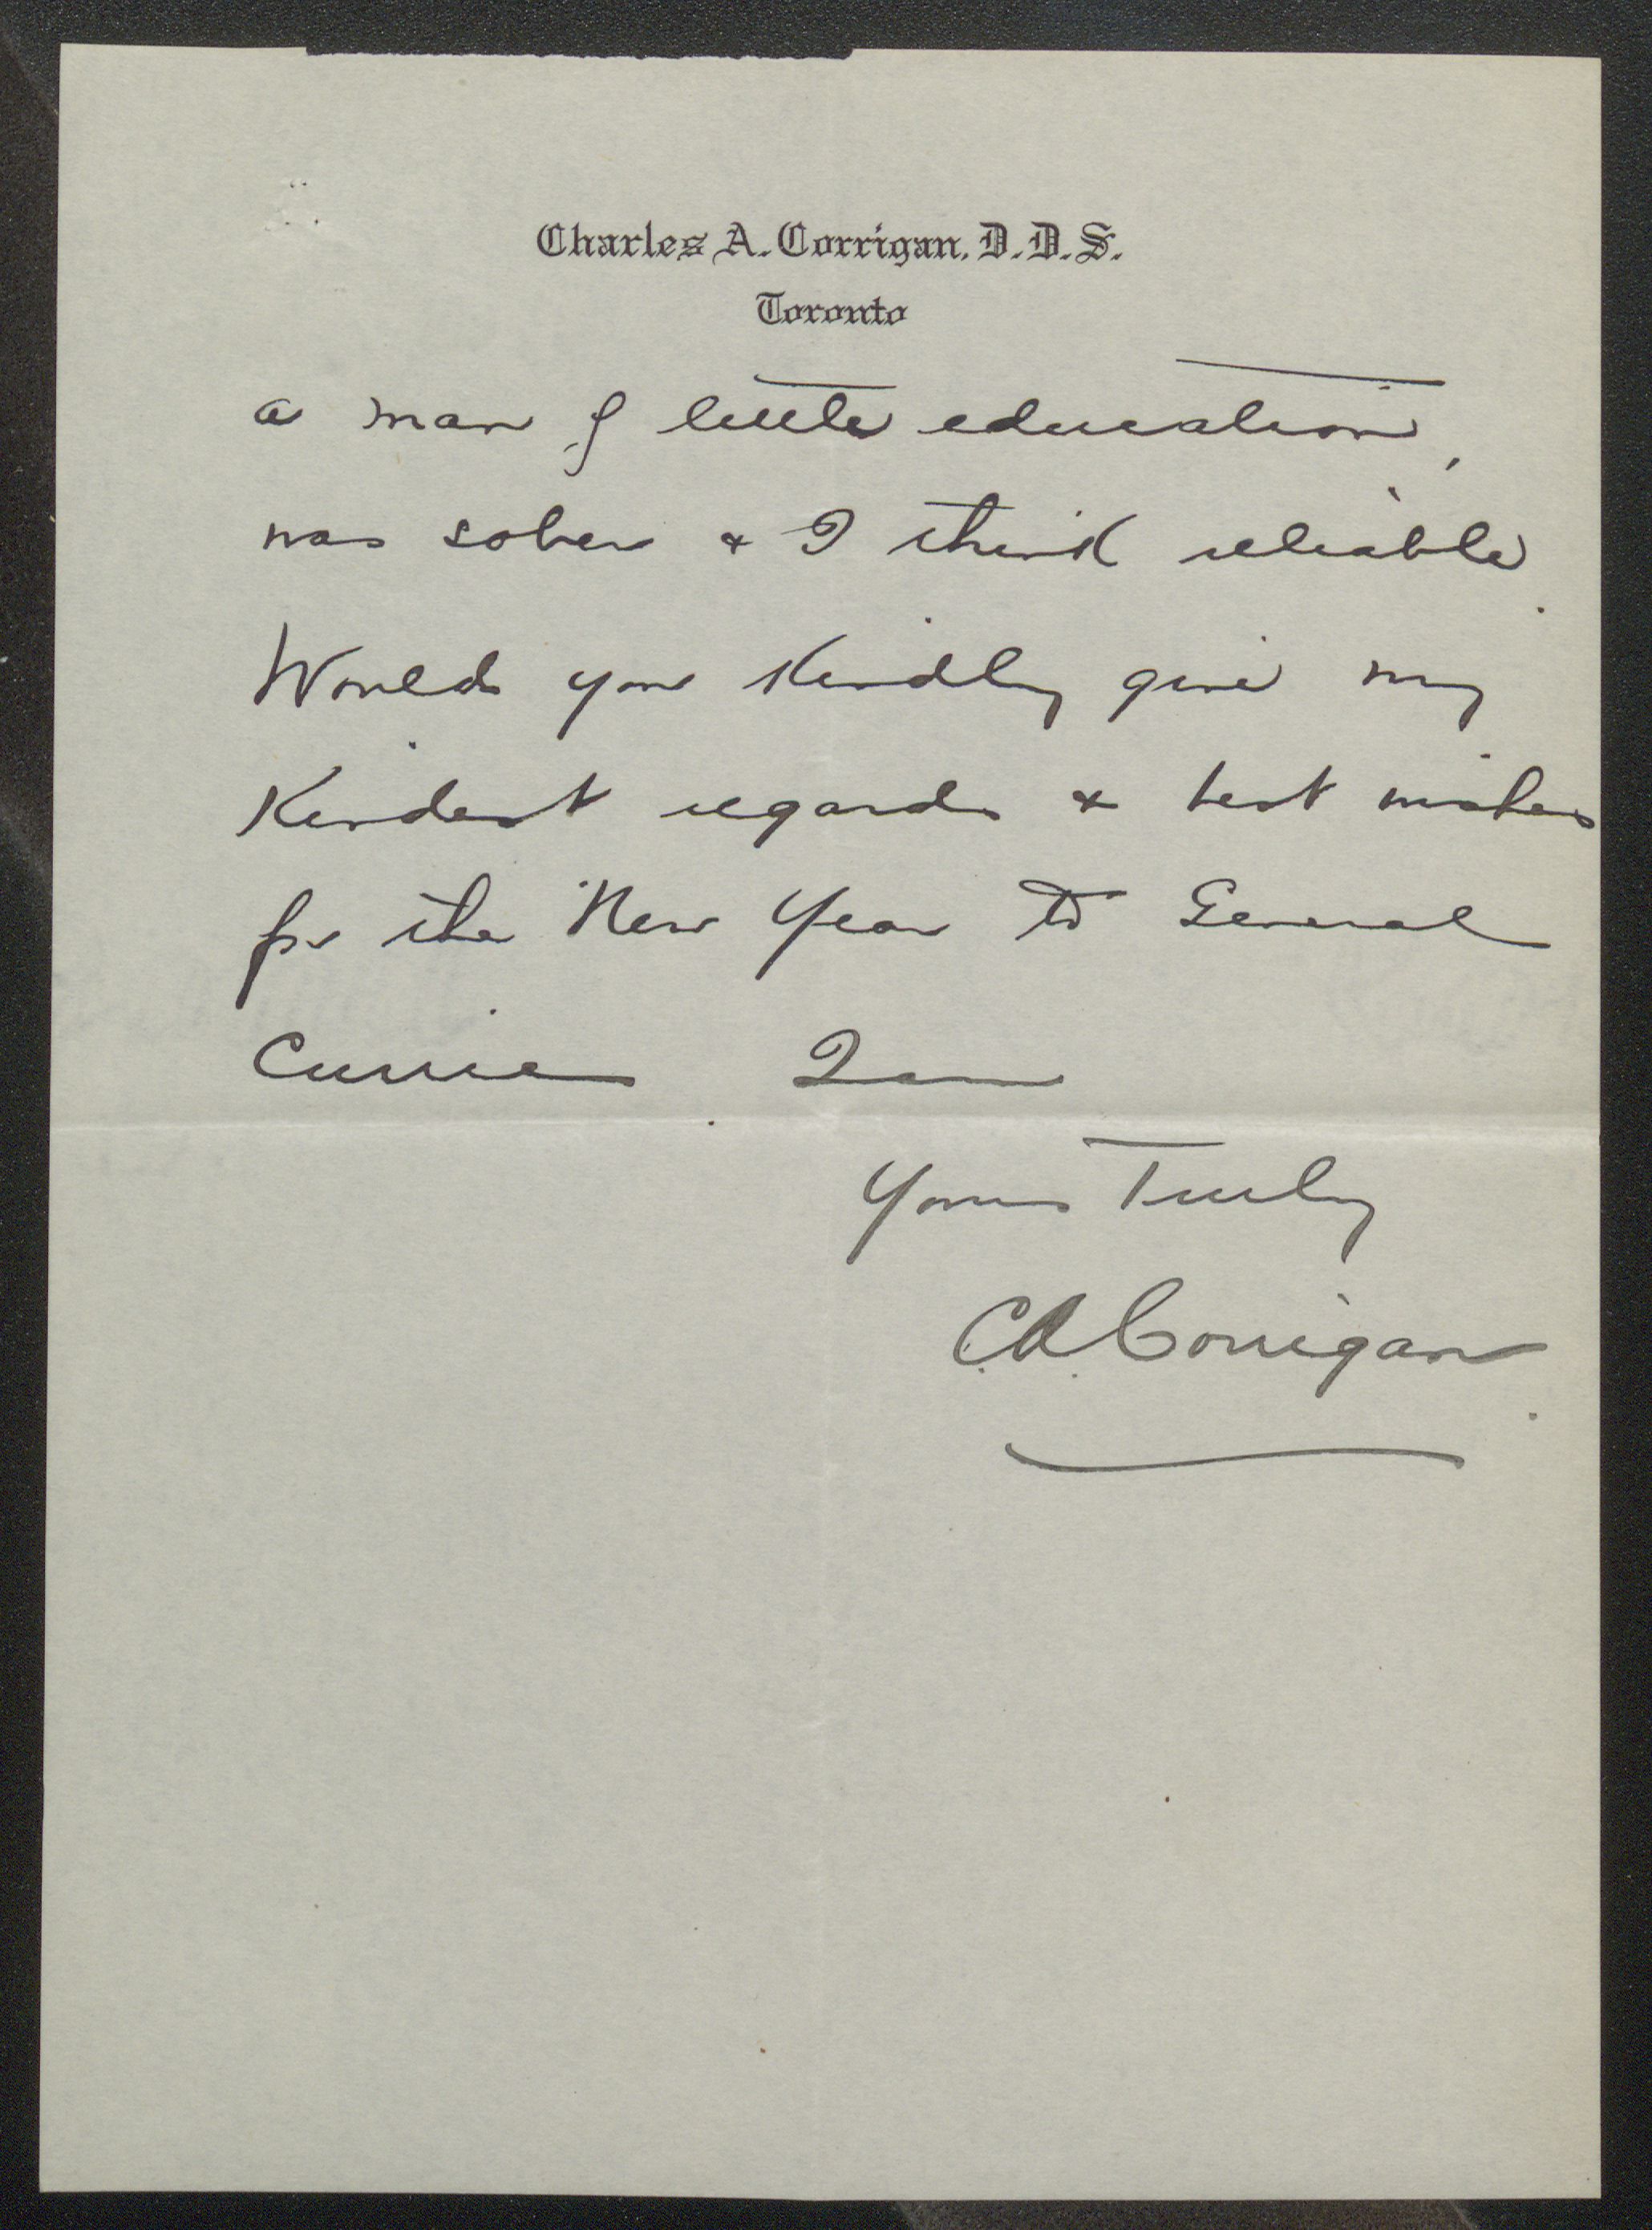 Charles A. Corrigan, D.D.S.
Toronto
a man of little education,
was sober & I think reliable.
Would you Kindly give my
Kindest regards & best wishes
for the New Year to General
Currie. I am
Yours Truly
C.A. Corrigan.